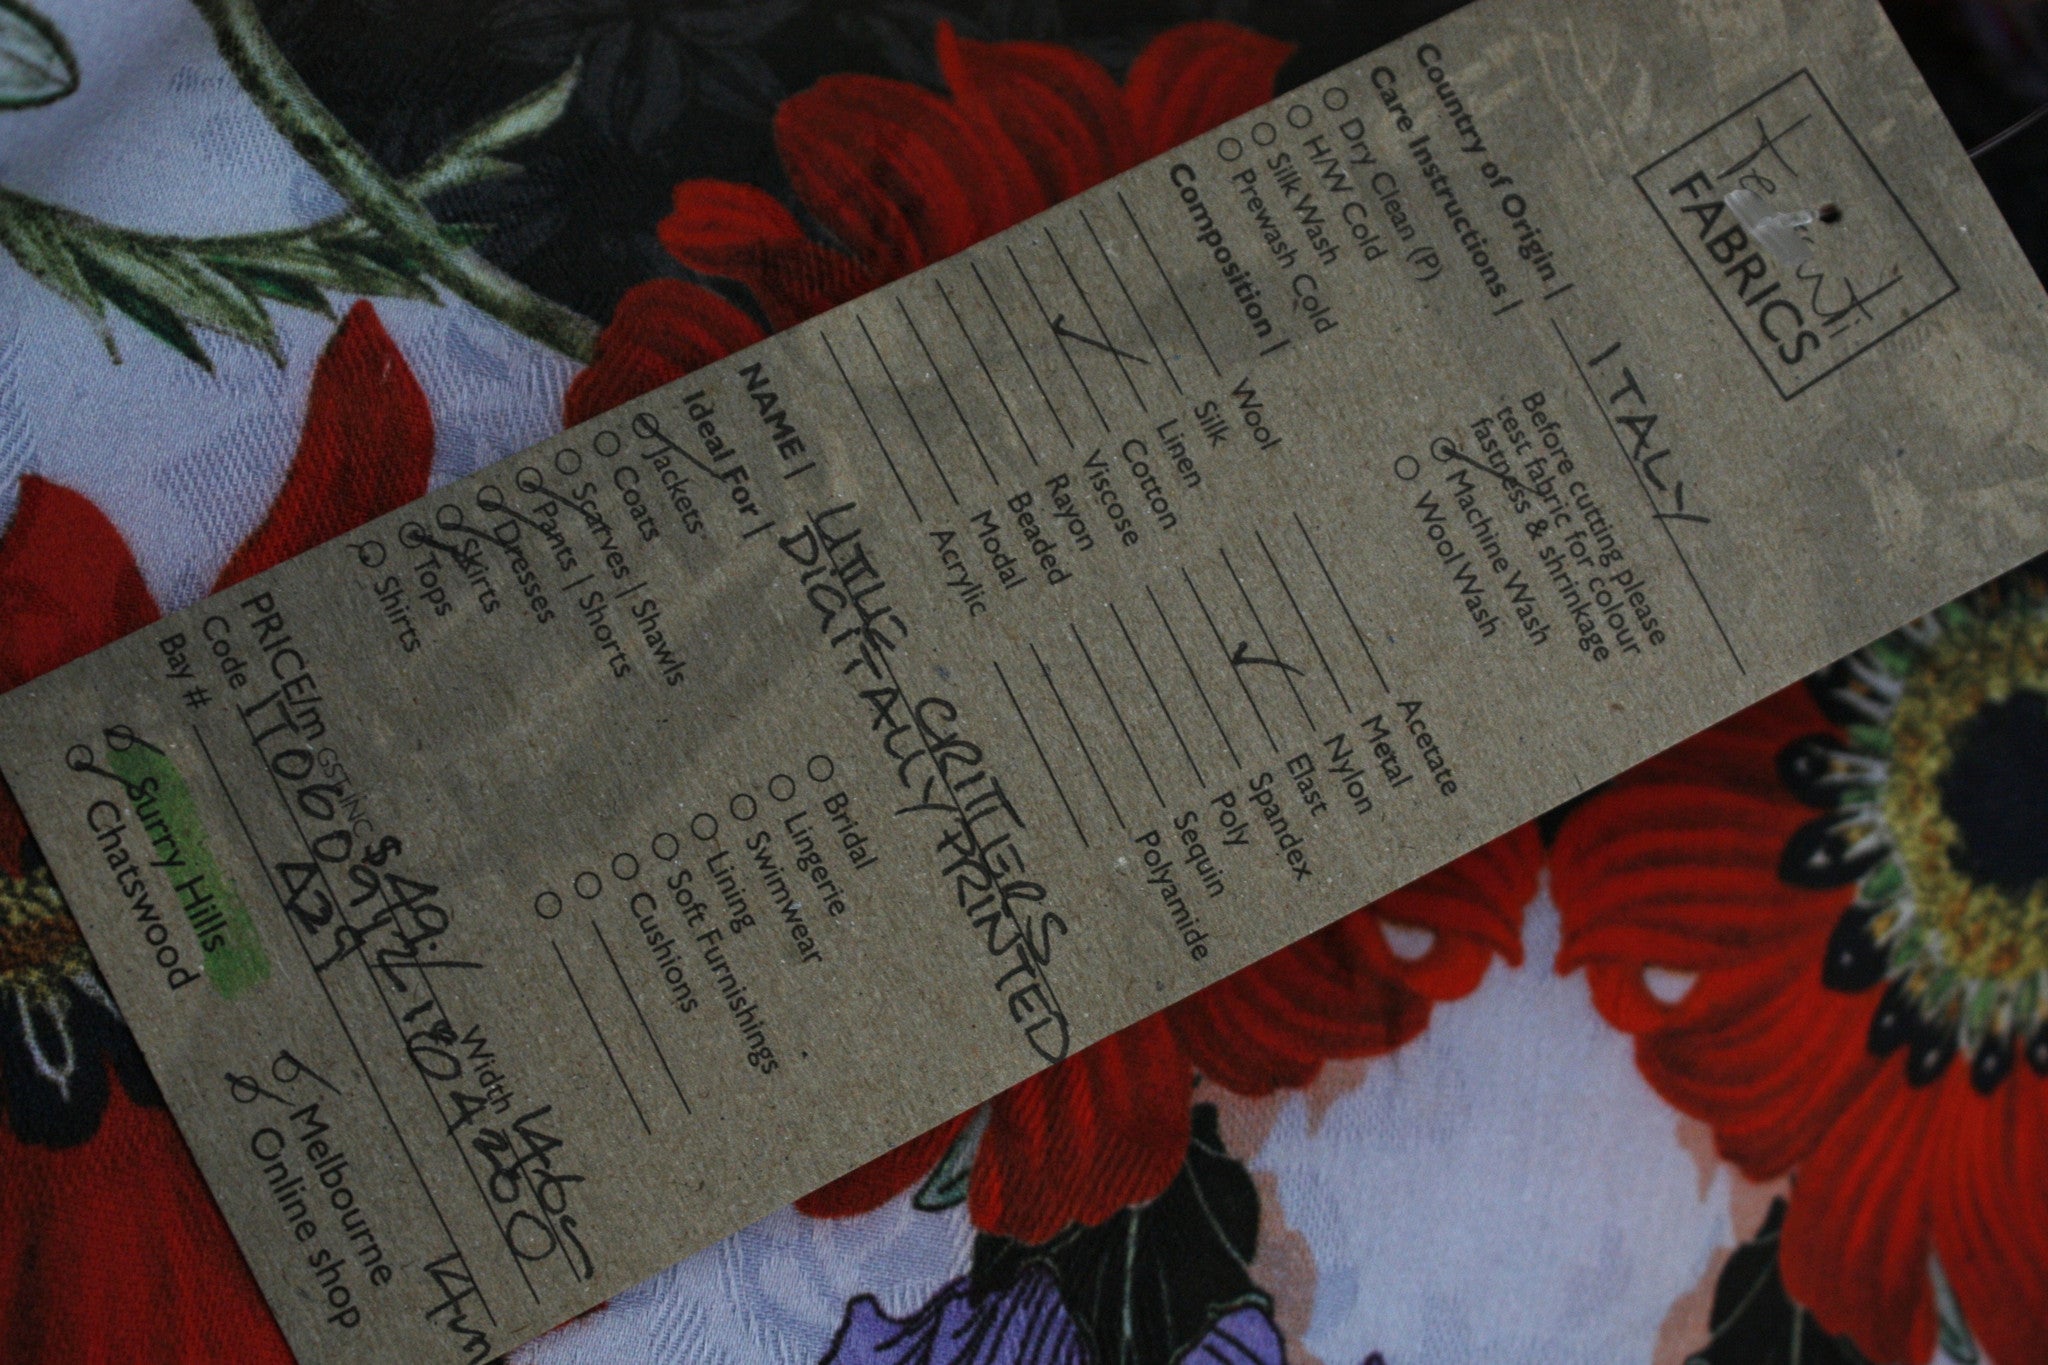 FABRICS
Country of Origin | ITALY
Care Instructions |
Before cutting please
test fabric for colour
fastness & shrinkage
Dry Clean (P)
H/W Cold
Silk Wash
Prewash Cold
Machine Wash
Wool Wash
Composition |
Wool
Silk
Linen
Cotton
Viscose
Rayon
Beaded
Modal
Acrylic
Acetate
Metal
Nylon
Elast
Spandex
Poly
Sequin
Polyamide
NAME | LITTLE CRITTERS
DIGITALLY PRINTED
Ideal For |
Jackets
Coats
Scarves | Shawls
Pants | Shorts
Dresses
Skirts
Tops
Shirts
Bridal
Lingerie
Swimwear
Lining
Soft Furnishings
Cushions
PRICE/m GST INC $49.- Width 146cm
Code
Bay # A29 14m
Surry Hills
Chatswood
Melbourne
Online shop